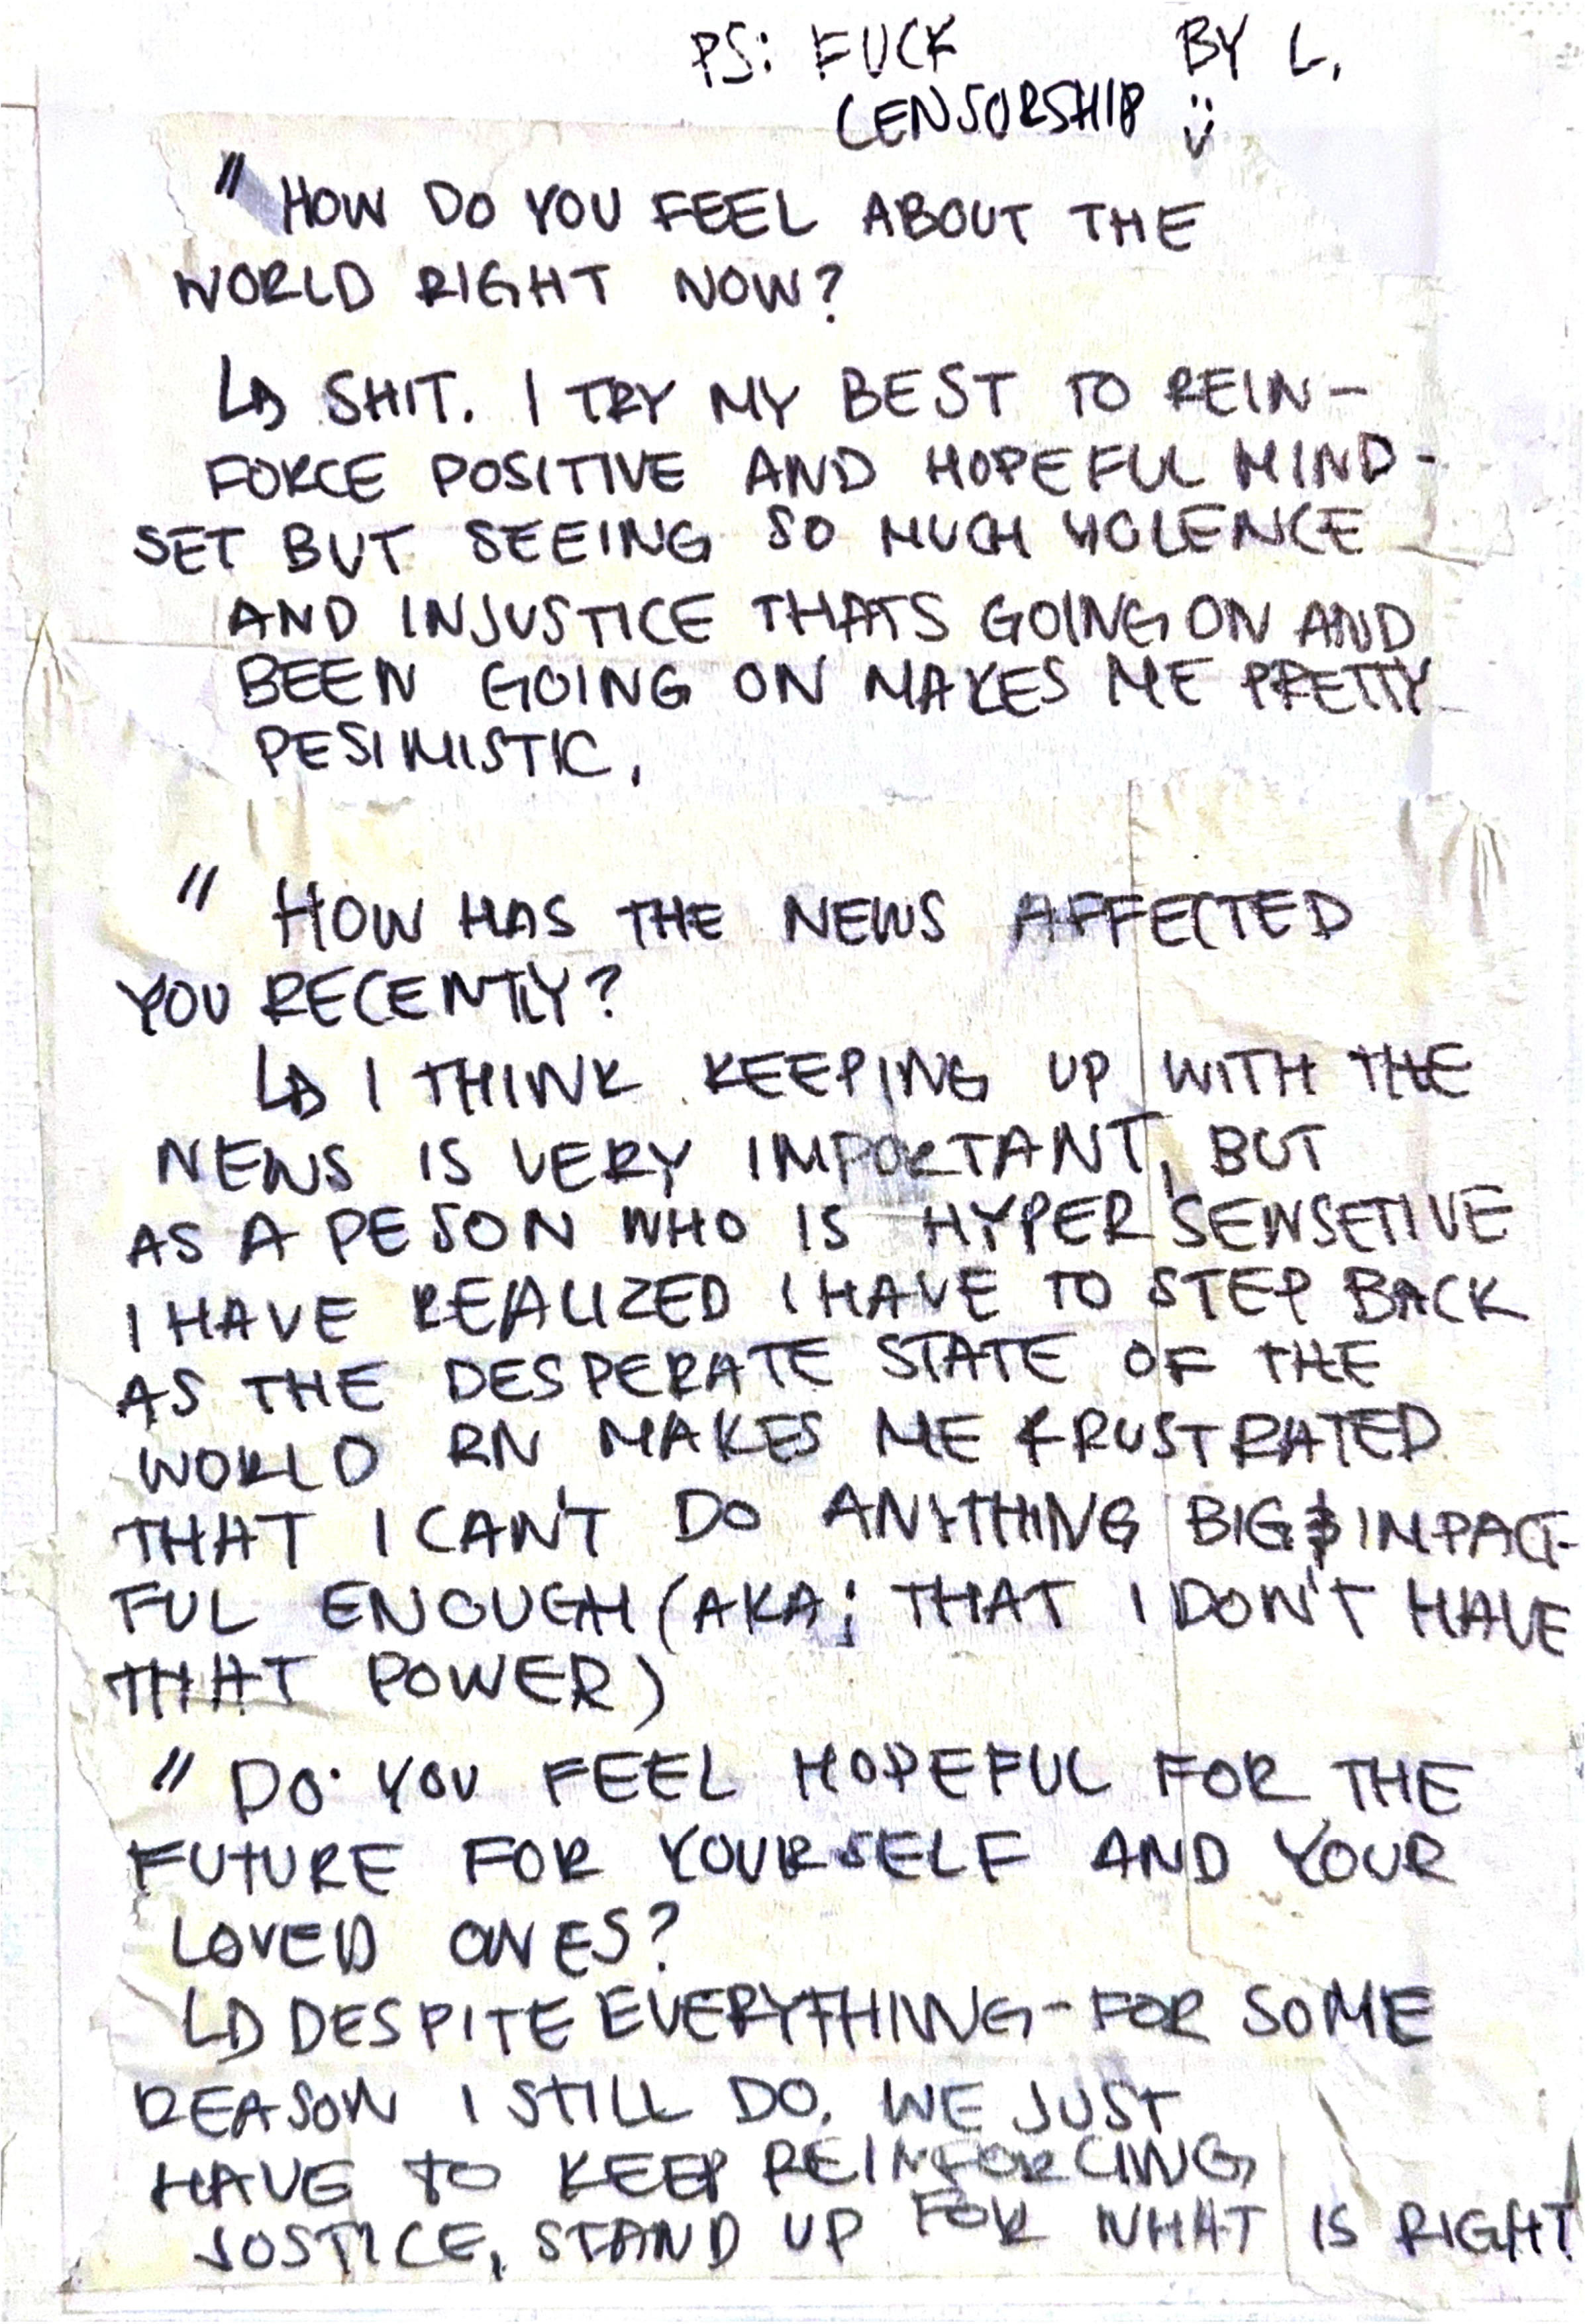 PS: FUCK BY L.
CENSORSHIP :)
" HOW DO YOU FEEL ABOUT THE
WORLD RIGHT NOW?
↳ SHIT. I TRY MY BEST TO REIN-
FORCE POSITIVE AND HOPEFUL MIND-
SET BUT SEEING SO MUCH VIOLENCE
AND INJUSTICE THATS GOING ON AND
BEEN GOING ON MAKES ME PRETTY
PESIMISTIC.
" HOW HAS THE NEWS AFFECTED
YOU RECENTLY?
↳ I THINK KEEPING UP WITH THE
NEWS IS VERY IMPORTANT, BUT
AS A PESON WHO IS HYPER SENSETIVE
I HAVE REALIZED I HAVE TO STEP BACK
AS THE DESPERATE STATE OF THE
WORLD RN MAKES ME FRUSTRATED
THAT I CAN'T DO ANYTHING BIG & IMPACT-
FUL ENOUGH (AKA; THAT I DON'T HAVE
THAT POWER)
" DO YOU FEEL HOPEFUL FOR THE
FUTURE FOR YOURSELF AND YOUR
LOVED ONES?
↳ DESPITE EVERYTHING - FOR SOME
REASON I STILL DO. WE JUST
HAVE TO KEEP REINFORCING
JUSTICE, STAND UP FOR WHAT IS RIGHT